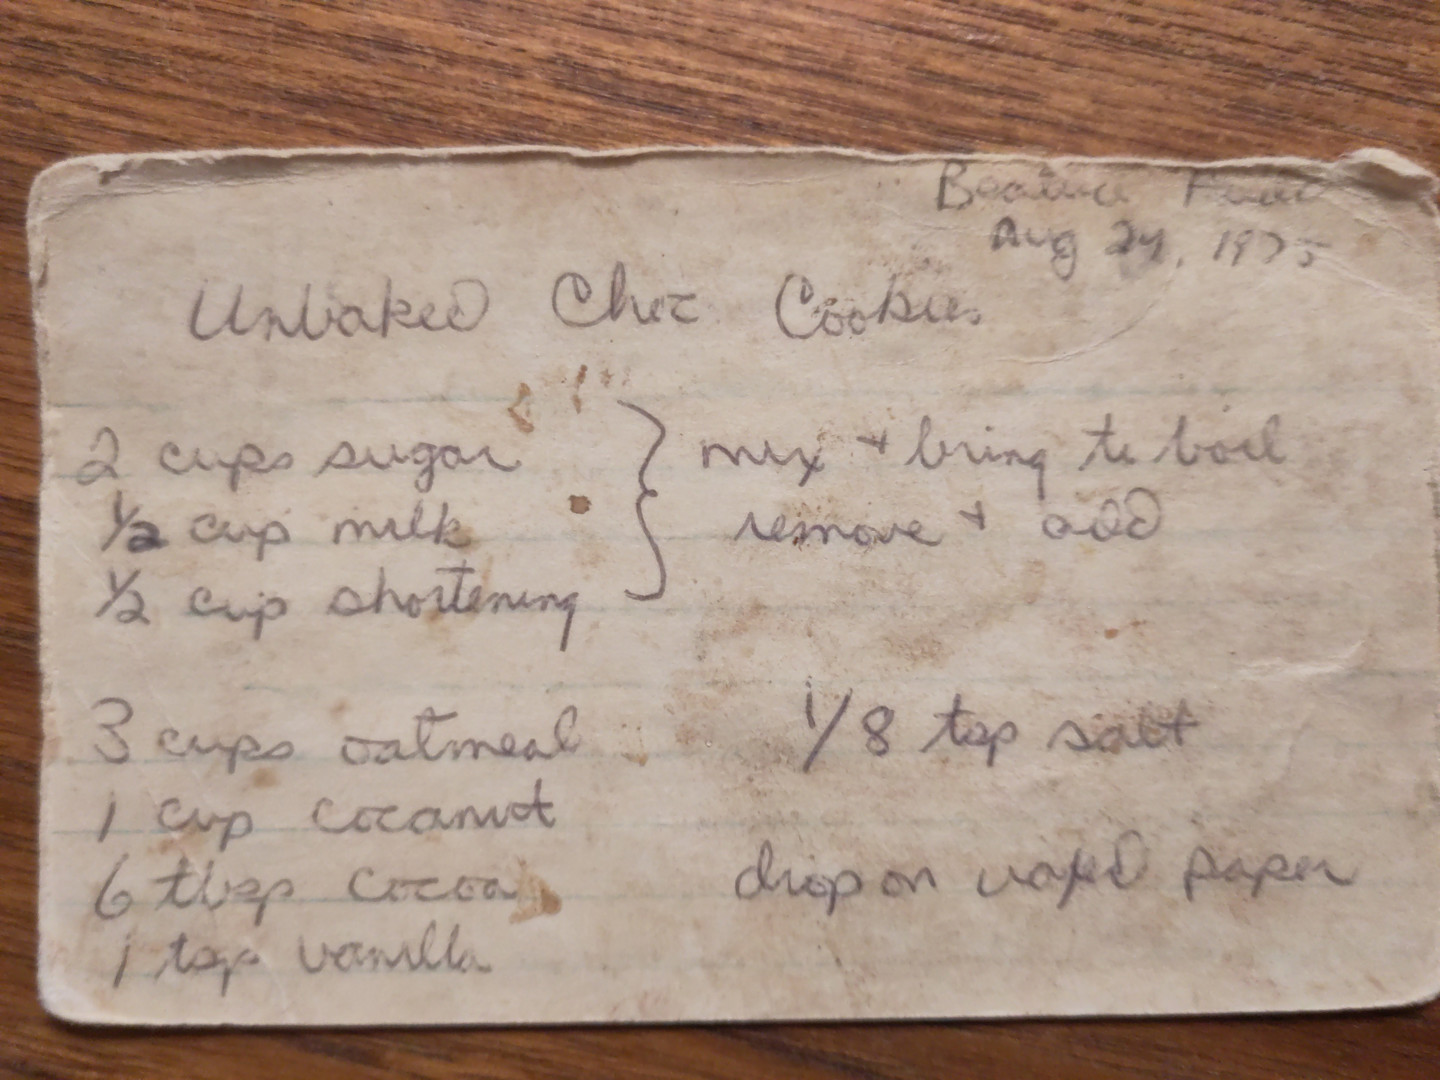 Beatrice
Aug 24, 1975
Unbaked Choc Cookies
2 cups sugar
½ cup milk
½ cup shortening
mix + bring to boil
remove + add
3 cups oatmeal
1 cup cocanut
6 tbsp cocoa
1 tsp vanilla
1/8 tsp salt
drop on waxed paper